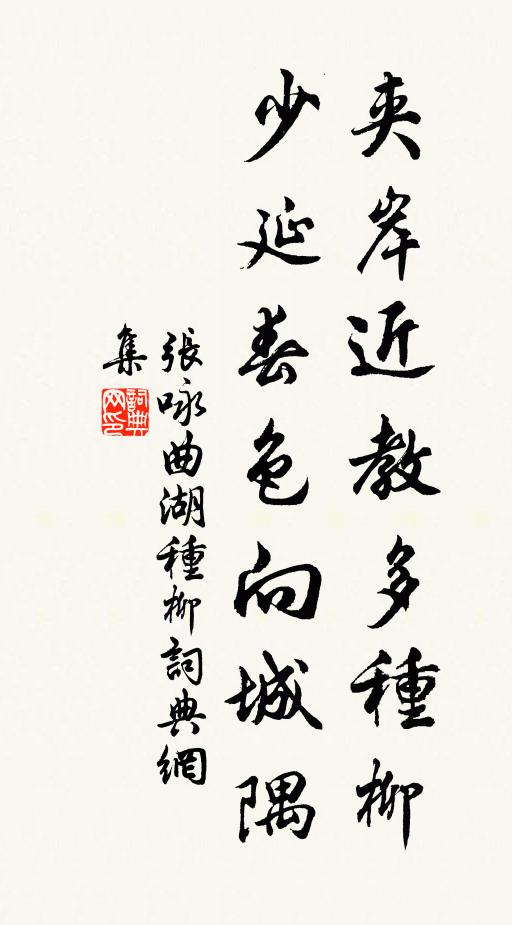 夾岸近教多種柳
少延春色向城隅
張咏曲湖種柳詞典網
集
詞典
网印